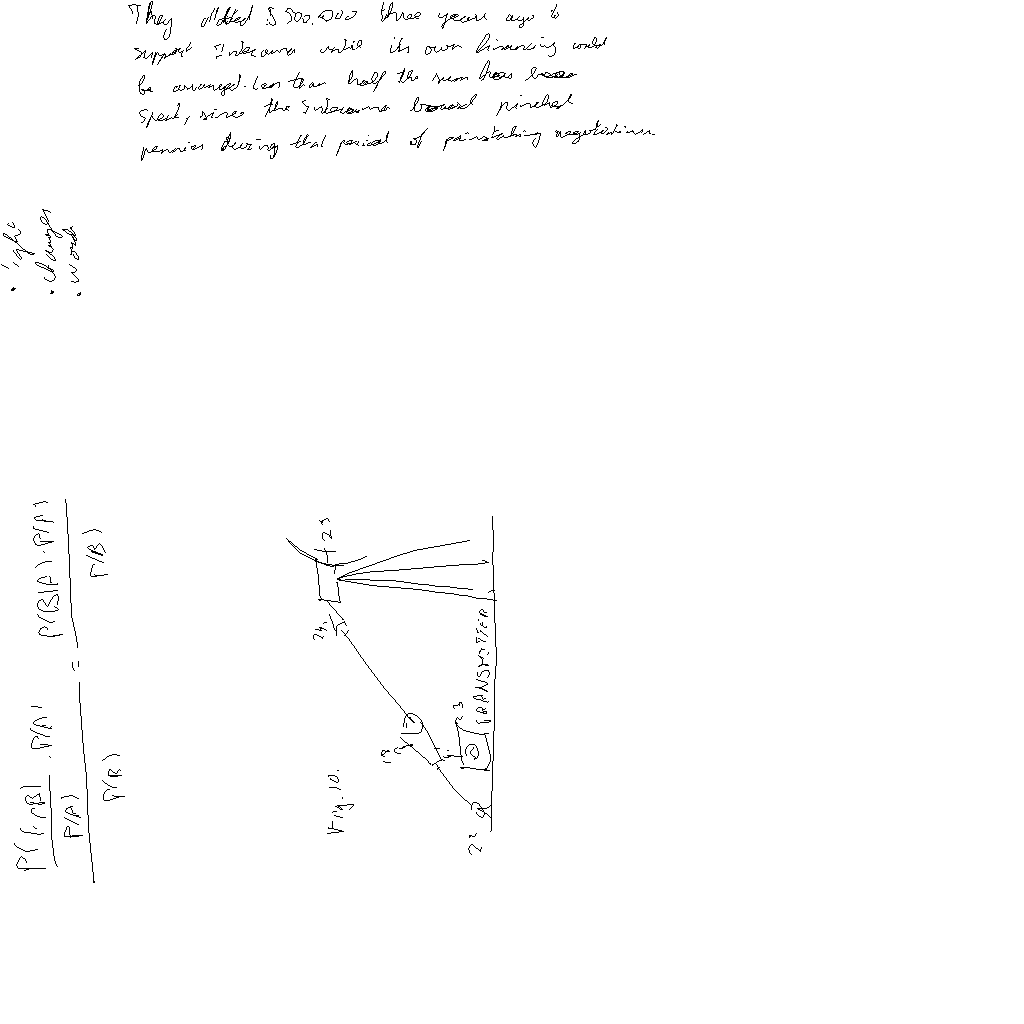 They allotted $500,000 three years ago to
support Intercama until its own financing could
be arranged. Less than half the sum has been
spent, since the Intercama board pinched
pennies during that period of painstaking negotiations.
• changes
• words
P(A∩B)/P(A) . P(A) / P(B) = P(B|A) . P(A) / P(B)
25
24.
TRANSMITTER
23
18
Fig. 10.
22